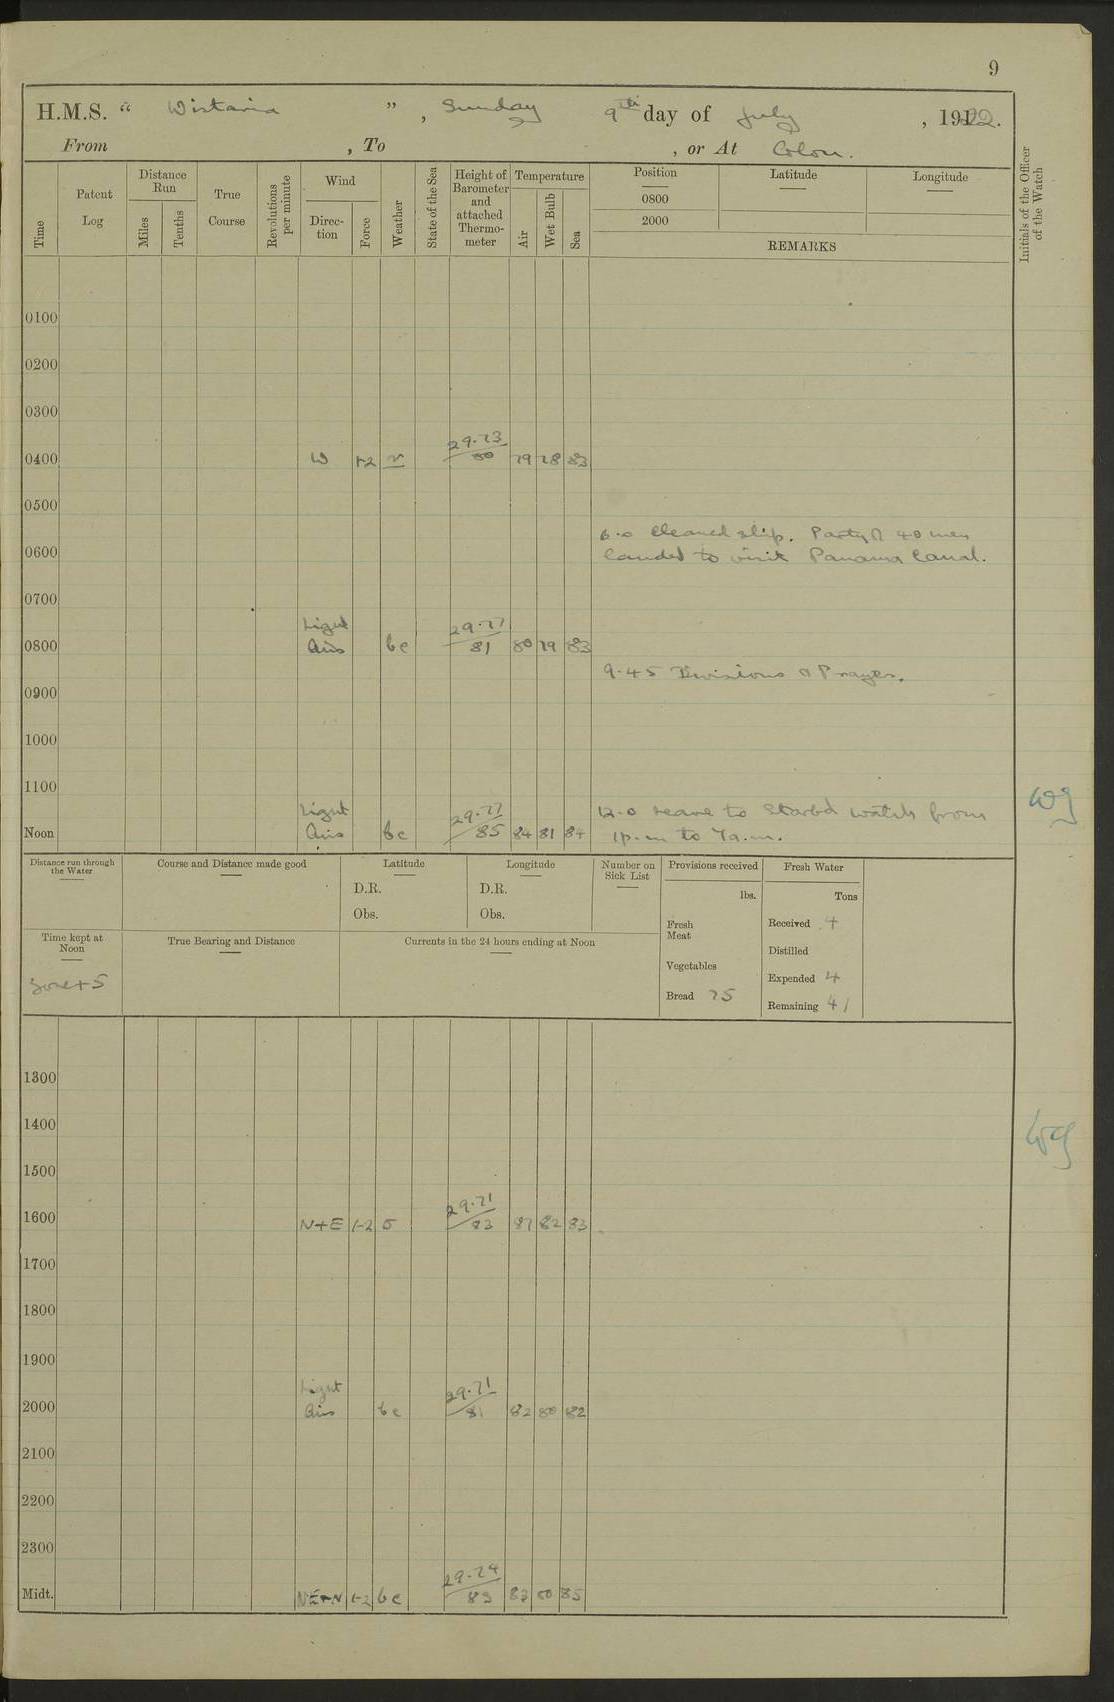 9
H.M.S. “ Wistaria ” , Sunday 9th day of July , 1922.
From , To , or At Colon.
Time
Patent Log
Distance Run
Miles
Tenths
True Course
Revolutions per minute
Wind
Direc- tion
Force
Weather
State of the Sea
Height of Barometer and attached Thermo- meter
Temperature
Air
Wet Bulb
Sea
Position
Latitude
Longitude
0800
2000
REMARKS
Initials of the Officer of the Watch
0100
0200
0300
0400 W 1-2 r 29.73 80 79 78 83
0500
6.0 Cleaned ship. Party of 40 men
0600 landed to visit Panama Canal.
0700
0800 Light Airs bc 29.77 81 80 79 83
9.45 Divisions & Prayers.
0900
1000
1100
12.0 Leave to Starbd watch from
Noon Light Airs bc 29.77 85 84 81 84 1 p.m. to 7 a.m.
Distance run through the Water
Course and Distance made good
Latitude
D.R.
Obs.
Longitude
D.R.
Obs.
Number on Sick List
Provisions received
lbs.
Fresh Meat
Vegetables
Bread 75
Fresh Water
Tons
Received 4
Distilled
Expended 4
Remaining 41
Time kept at Noon
Zone + 5
True Bearing and Distance
Currents in the 24 hours ending at Noon
1300
1400
1500
1600 N+E 1-2 o 29.71 83 87 82 83
1700
1800
1900
2000 Light Airs bc 29.71 81 82 80 82
2100
2200
2300
Midt. NE+N 1-2 bc 29.74 83 80 85